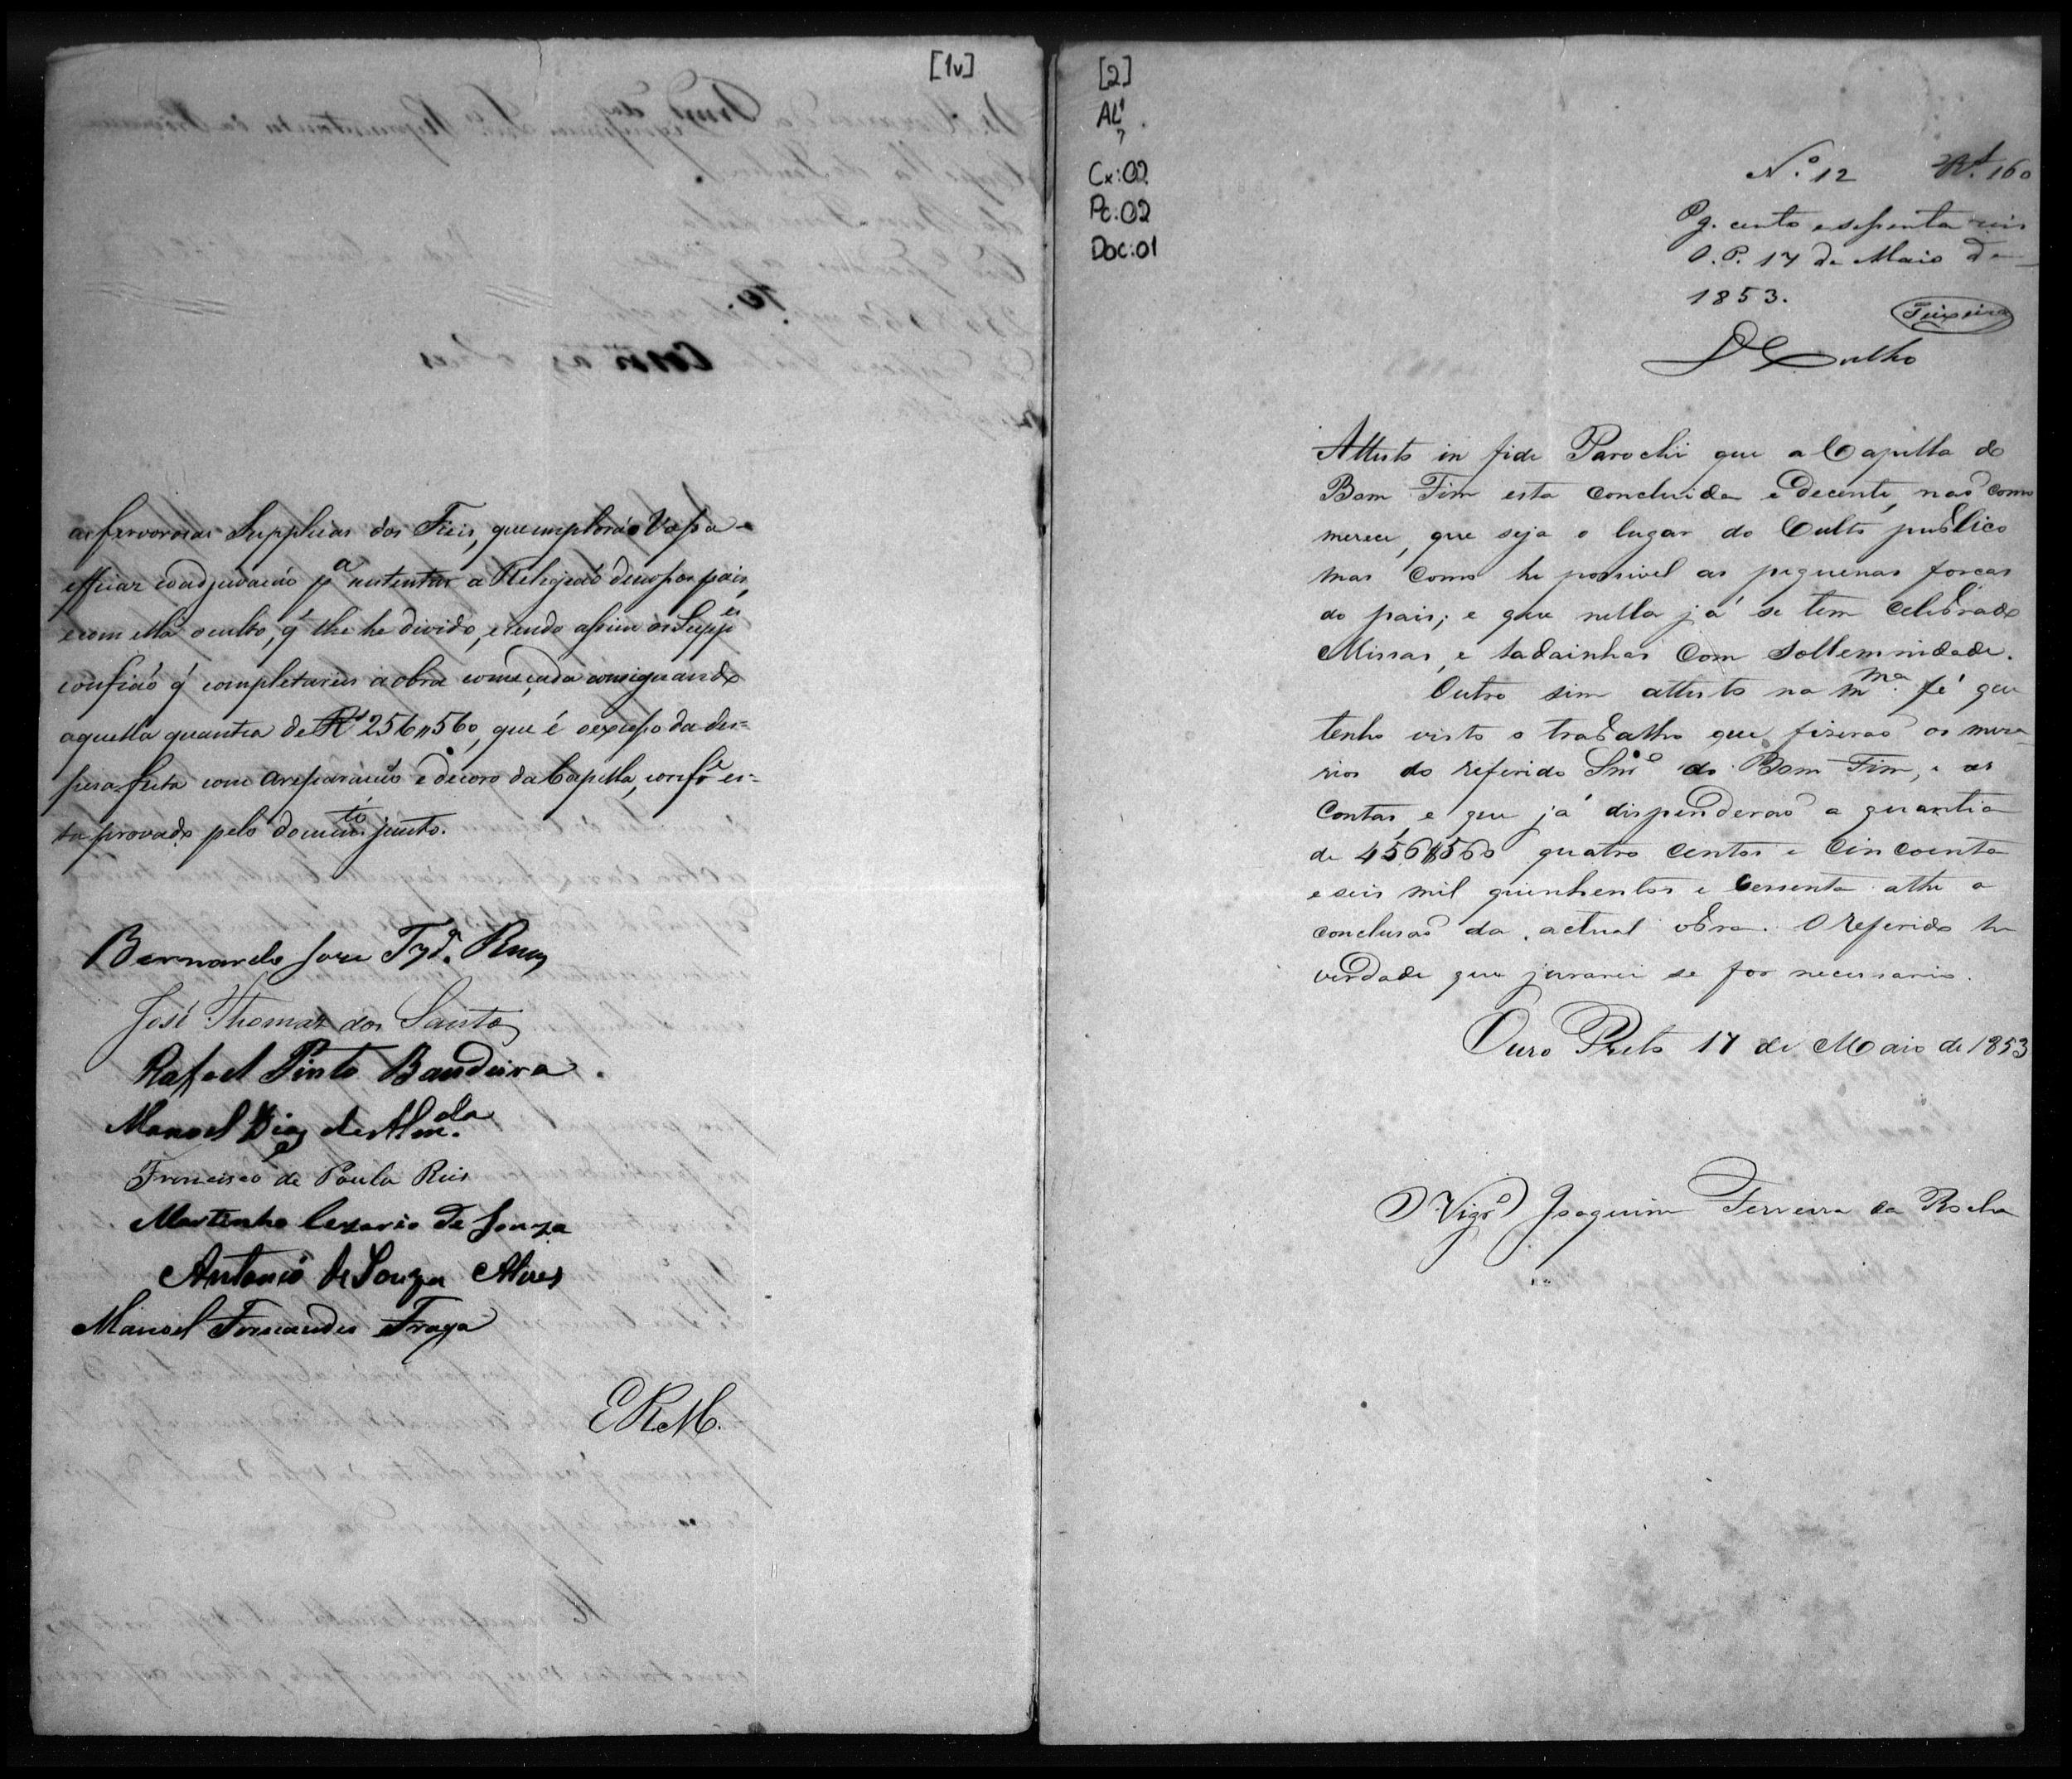 [1v]
as fervorosas Supplicas dos Fieis, que implorão Vossa
efficaz coadjuvacão pa sustentar a Religião de nossos pais,
e com ella o culto, q' lhe he divido, e sendo assim os Suppes
confião q' completareis a obra começada consignando
aquella quantia de Rs 256,,560, que é o excesso da des=
pesa feita com a reparacão e decoro da Capella, confe es=
ta provado pelo documto junto.
Bernardo Jose
José Thomaz dos Santos
Rafael Pinto Bandeira.
Manoel Dias de Almda
Francisco de Paula Reis
Martinho Cezario de Souza
Antonio de Souza Alves
Manoel Fernandes Fraga
E R Mce.
[2]
AL1
?
Cx:02
Pc:02
Doc:01
No. 12 Rs. 160
Pg. cento e sessenta reis
O.P. 17 de Maio de
1853.
Teixeira
Coelho
Attesto in fide Parochi que a Capella do
Bom Fim esta concluida e decente, nao como
merece, que seja o lugar do Culto publico
mas como he possivel as piquenas forcas
do pais; e que nella já se tem celebrado
Missas, e ladainhas com sollemnidade.
Outro sim attesto na mma. fé que
tenho visto o trabalho que fizerao os meza
rios do referido Snr do Bom Fim, e as
contas, e que já dispenderao a quantia
de 456$560 quatro centos e cincoenta
e seis mil quinhentos e sessenta athe a
conclusao da actual obra. O referido he
verdade que jurarei se for necessario.
Ouro Preto 17 de Maio de 1853
O Vigro Joaquim Ferreira da Rocha